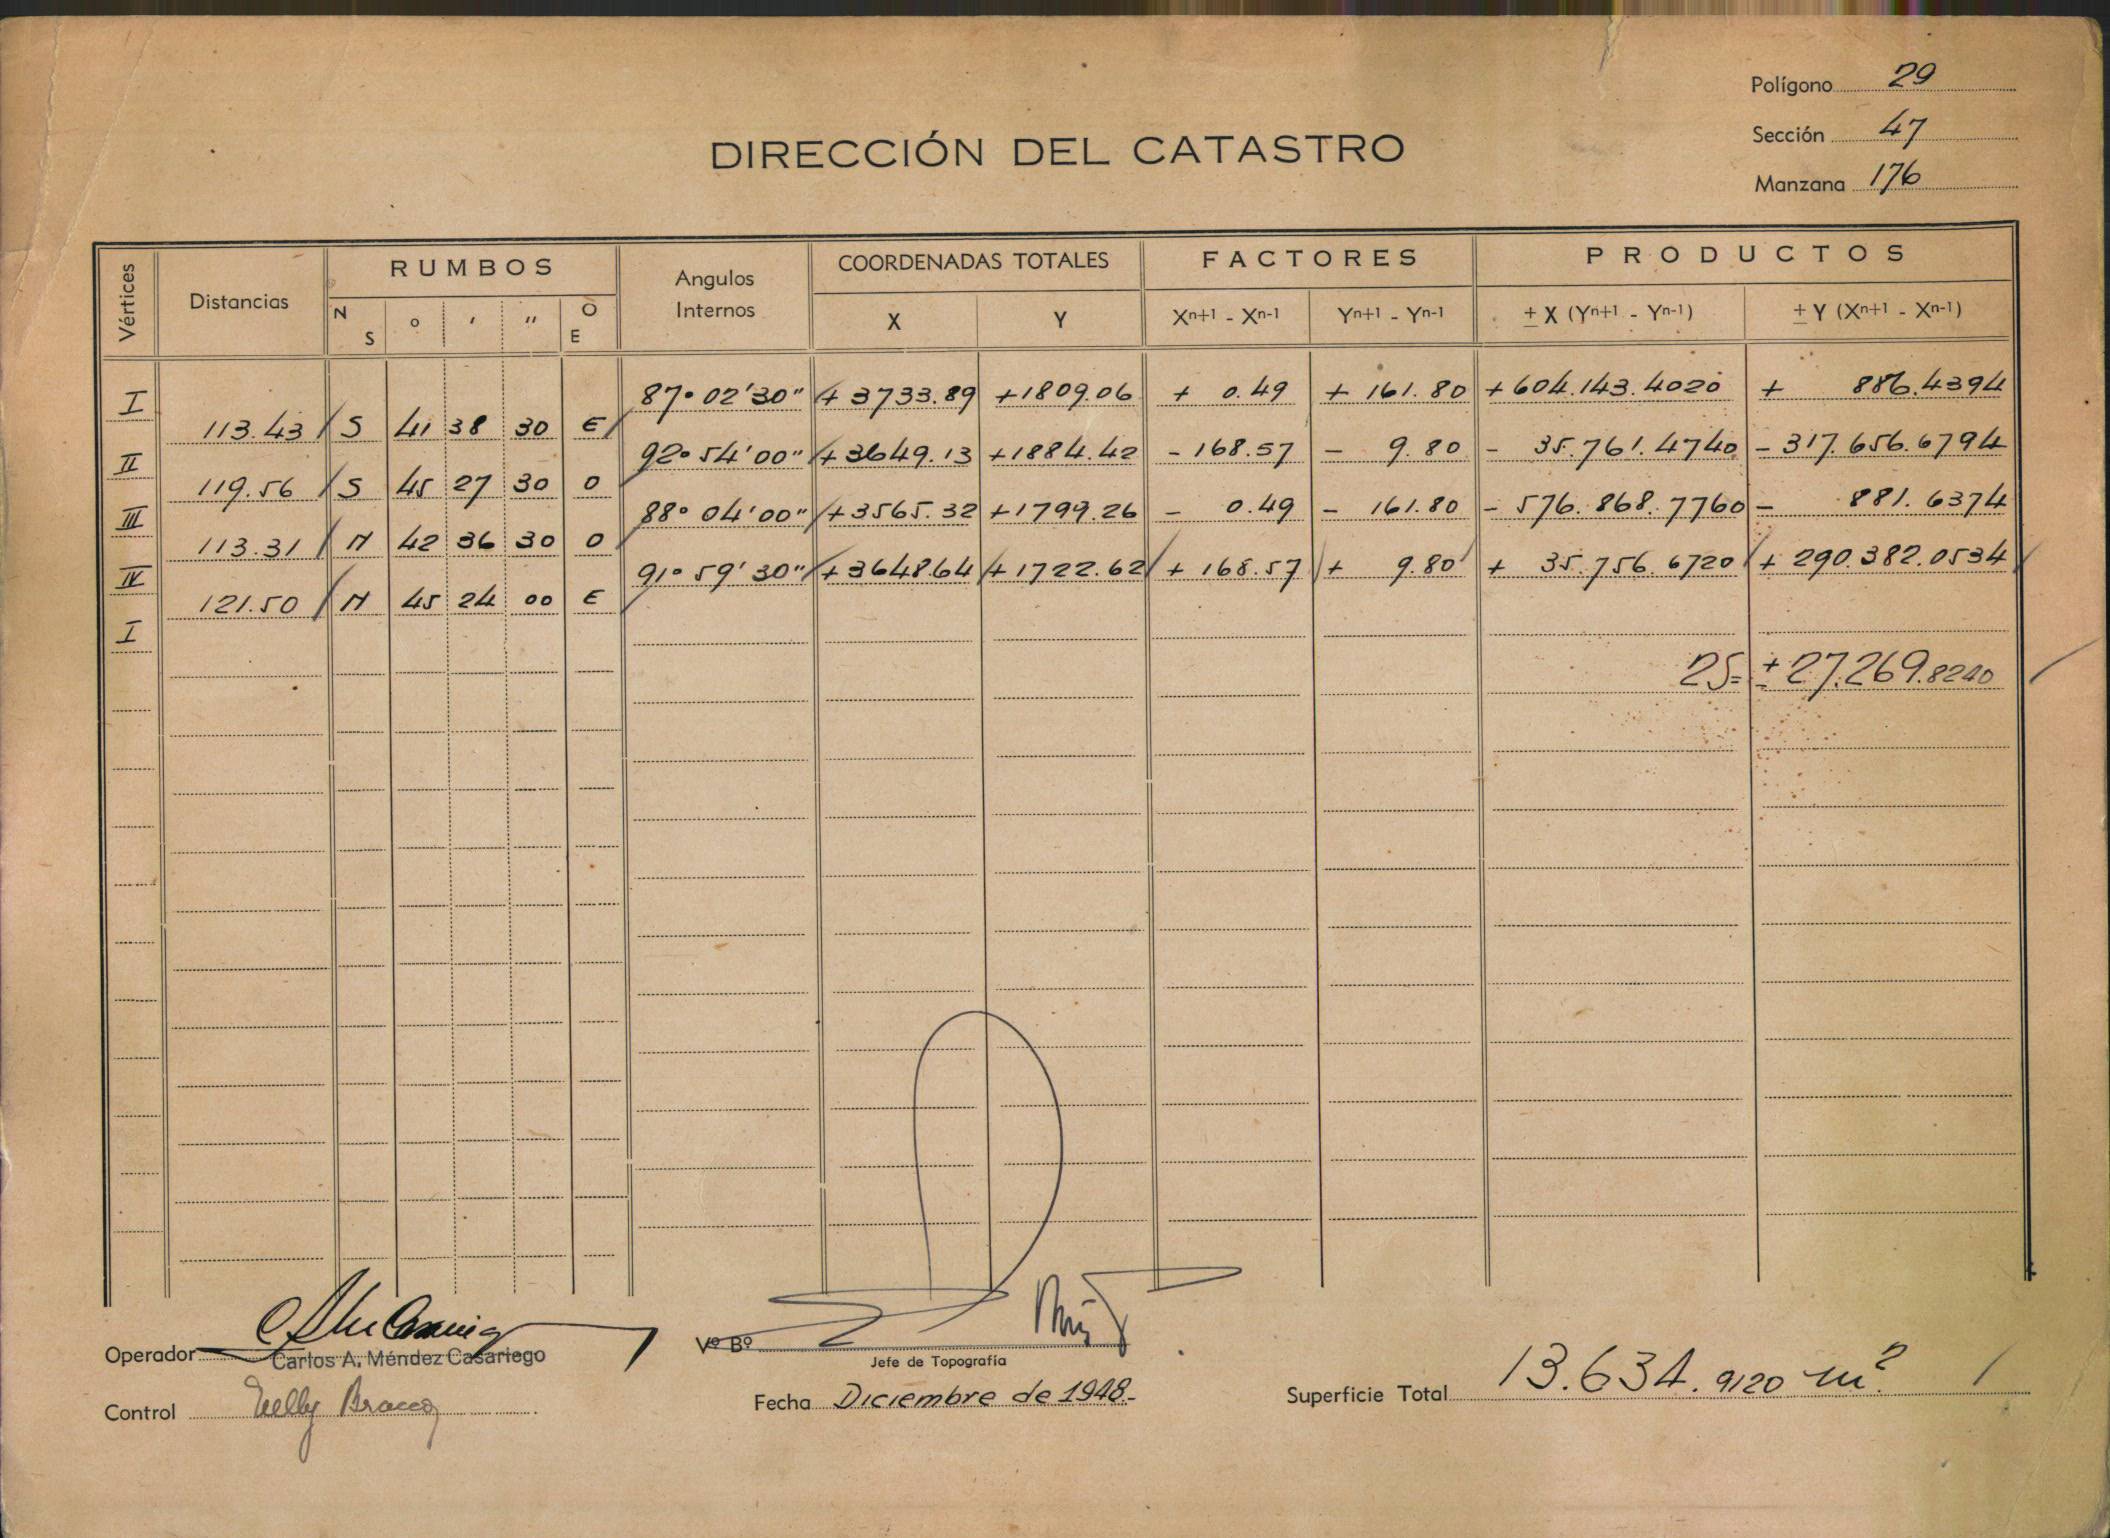 Polígono 29
Sección 47
Manzana 176
DIRECCIÓN DEL CATASTRO
Vértices Distancias RUMBOS Angulos Internos COORDENADAS TOTALES FACTORES PRODUCTOS
N S ° ' " O E X Y Xn+1 - Xn-1 Yn+1 - Yn-1 ± X (Yn+1 - Yn-1) ± Y (Xn+1 - Xn-1)
I 87° 02' 30" + 3733.89 +1809.06 + 0.49 + 161.80 +604.143.4020 + 886.4394
113.43 S 41 38 30 E
II 92° 54' 00" + 3649.13 +1884.42 - 168.57 - 9.80 - 35.761.4740 - 317.656.6794
119.56 S 45 27 30 O
III 88° 04' 00" +3565.32 +1799.26 - 0.49 - 161.80 - 576.868.7760 - 881.6374
113.31 N 42 36 30 O
IV 91° 59' 30" +3648.64 +1722.62 + 168.57 + 9.80 + 35.756.6720 + 290.382.0534
121.50 N 45 24 00 E
I
2S= ± 27.269.8240
Operador Carlos A. Méndez Casariego
Vº Bº
Jefe de Topografía
Control Nelly Bracco
Fecha Diciembre de 1948.-
Superficie Total 13.634.9120 m².